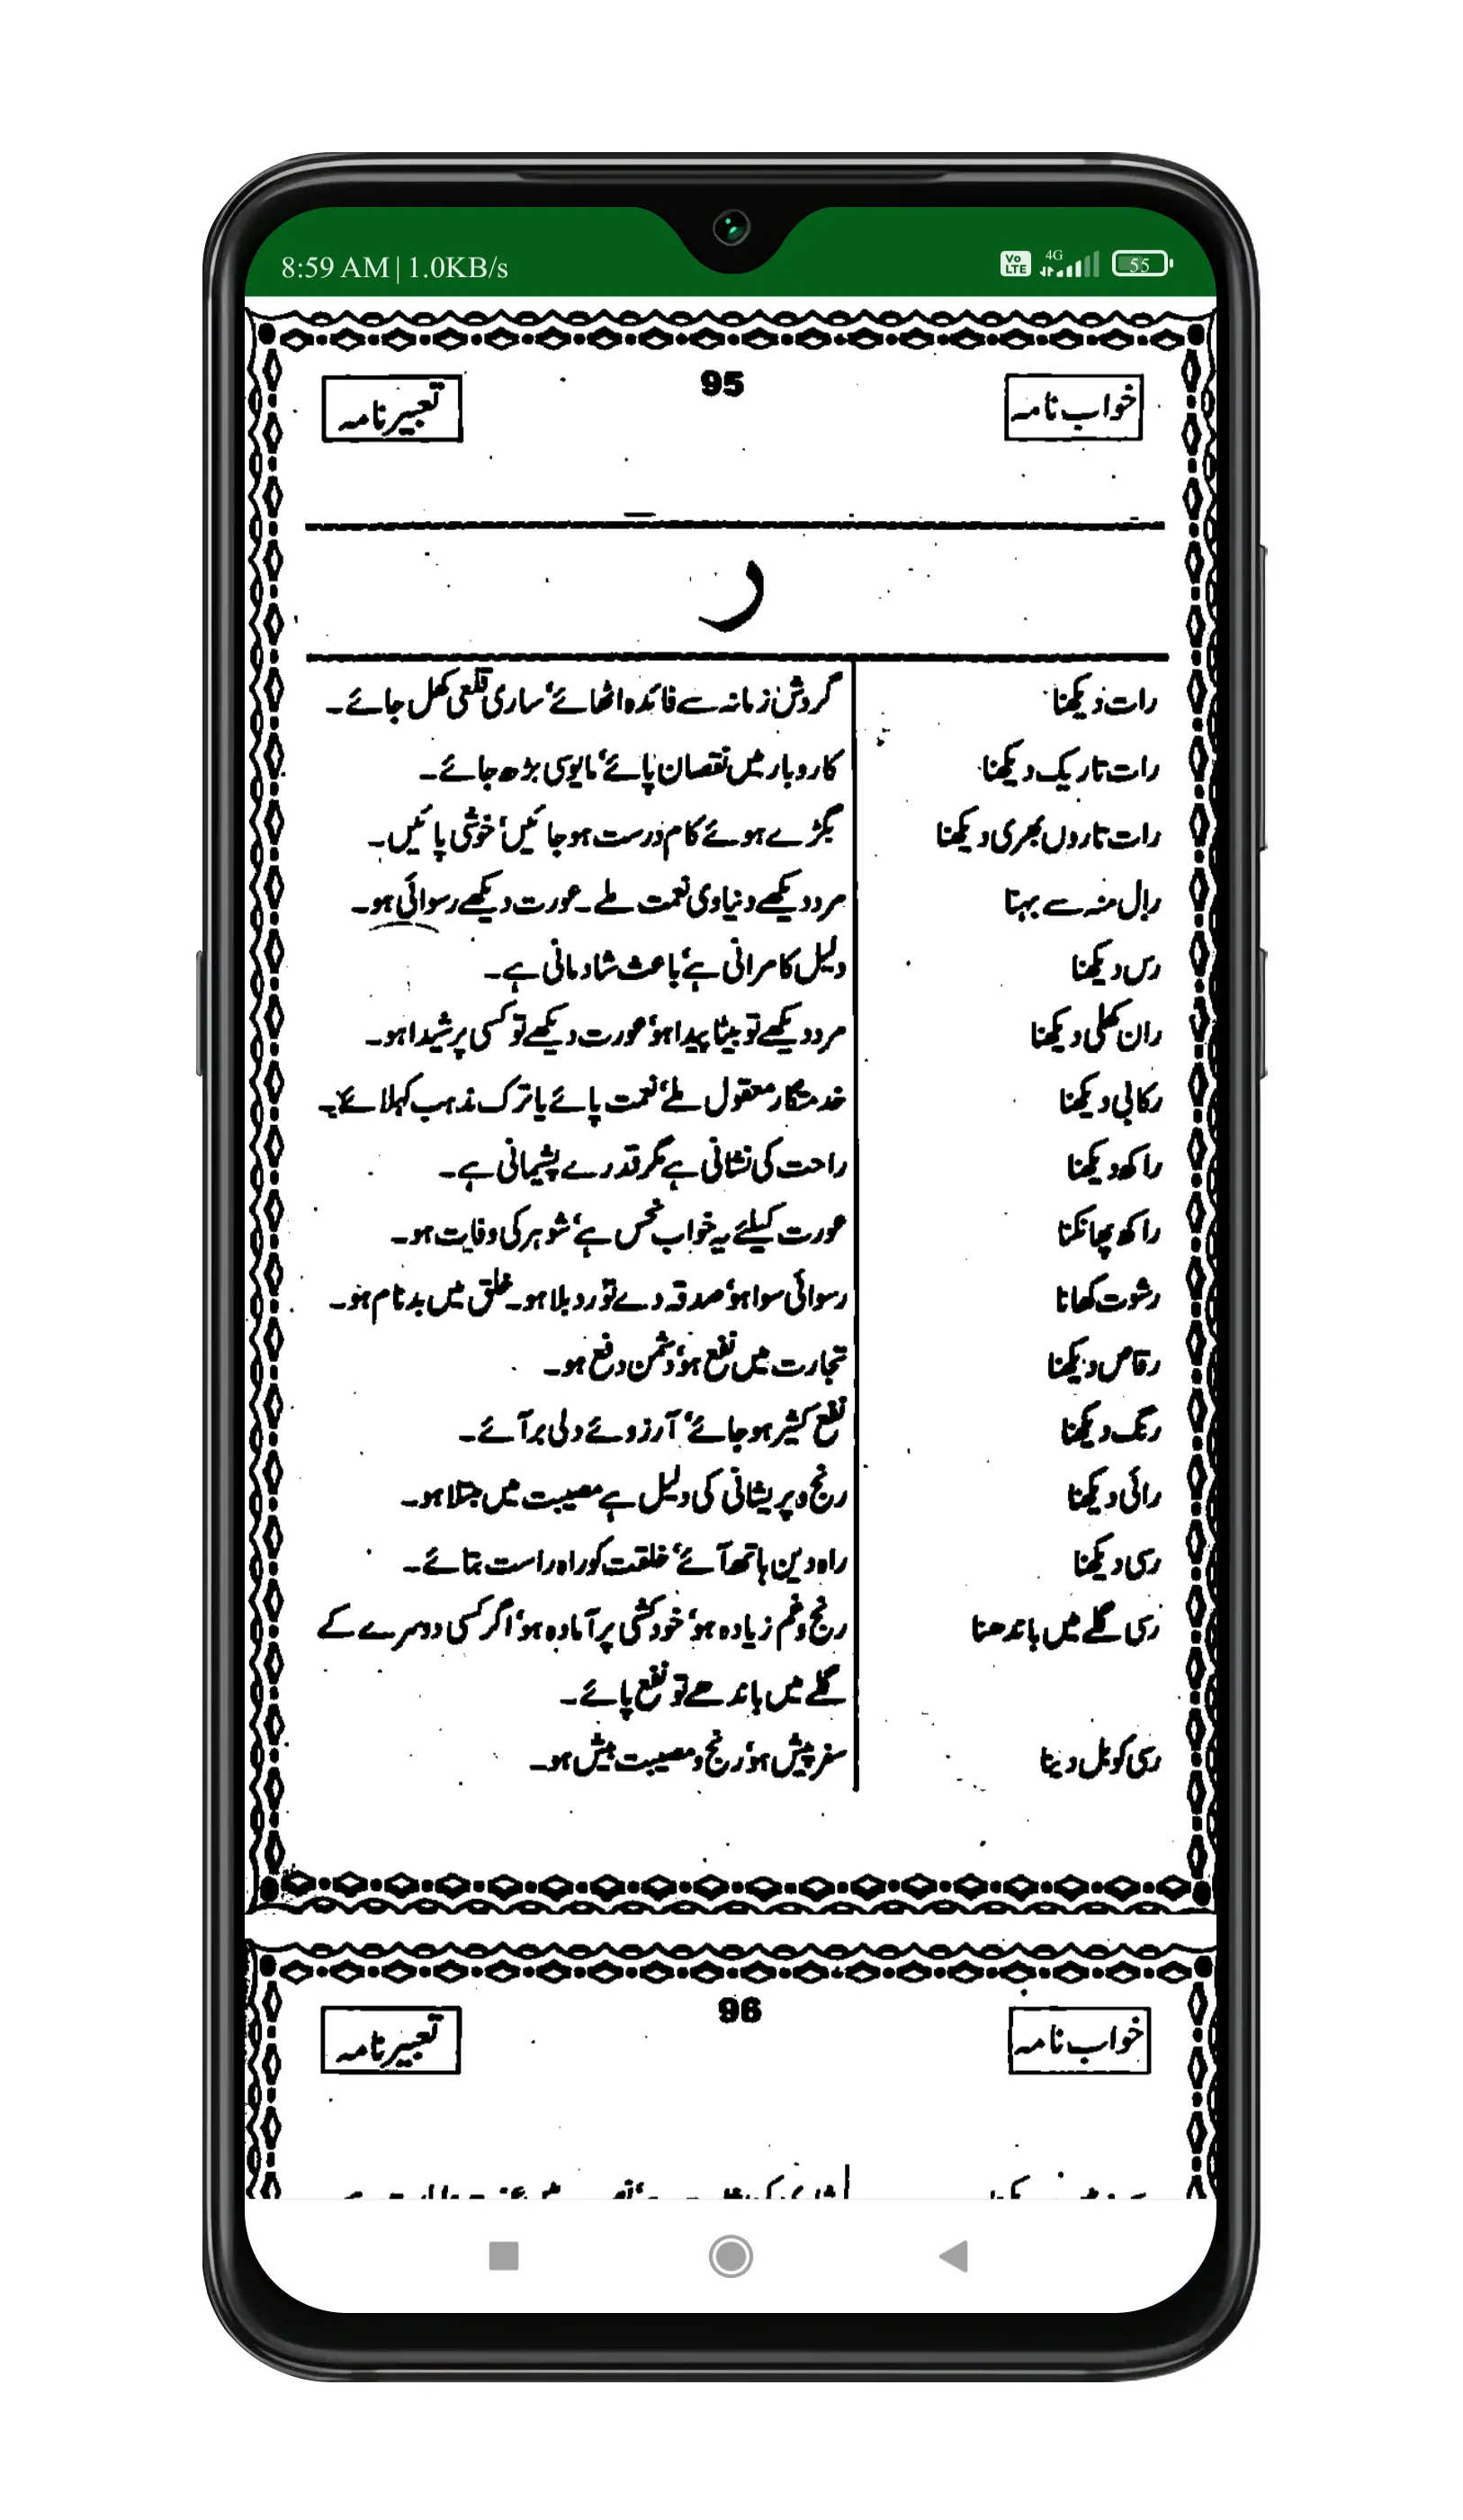 8:59 AM | 1.0KB/s
Vo LTE 4G 55
خواب نامہ 95 تعبیر نامہ
ر
رات دیکھنا گردش زمانہ سے فائدہ اٹھائے‘ ساری قلعی کھل جائے۔
رات تاریک دیکھنا کاروبار میں نقصان پائے‘ مایوسی بڑھ جائے۔
رات تاروں بھری دیکھنا بگڑے ہوئے کام درست ہو جائیں‘ خوشی پائیں۔
رال منہ سے بہنا مرد دیکھے دنیاوی نعمت ملے۔ عورت دیکھے رسوائی ہو۔
رس دیکھنا دلیل کامرانی ہے‘ باعث شادمانی ہے۔
ران کھلی دیکھنا مرد دیکھے تو بیٹا پیدا ہو‘ عورت دیکھے تو کسی پر شیدا ہو۔
رکابی دیکھنا خدمتگار معقول ملے‘ نعمت پائے یا ترک مذہب کہلائے۔
راکھ دیکھنا راحت کی نشانی ہے مگر قدرے پشیمانی ہے۔
راکھ پھانکنا عورت کیلئے یہ خواب نحس ہے‘ شوہر کی وفات ہو۔
رشوت کھانا رسوائی سوا ہو‘ صدقہ دے تو رد بلا ہو۔ خلق میں بدنام ہو۔
رقاص دیکھنا تجارت میں نفع ہو‘ دشمن دفع ہو۔
رنگ دیکھنا نفع کثیر ہو جائے‘ آرزوئے دلی بر آئے۔
رائی دیکھنا رنج و پریشانی کی دلیل ہے مصیبت میں مبتلا ہو۔
رسی دیکھنا راہ دین ہاتھ آئے‘ خلقت کو راہ راست بتائے۔
رسی گلے میں باندھنا رنج و غم زیادہ ہو‘ خودکشی پر آمادہ ہو‘ اگر کسی دوسرے کے
گلے میں باندھے تو نفع پائے۔
رسی کو بل دینا سفر پیش ہو‘ رنج و مصیبت بیش ہو۔
خواب نامہ 96 تعبیر نامہ